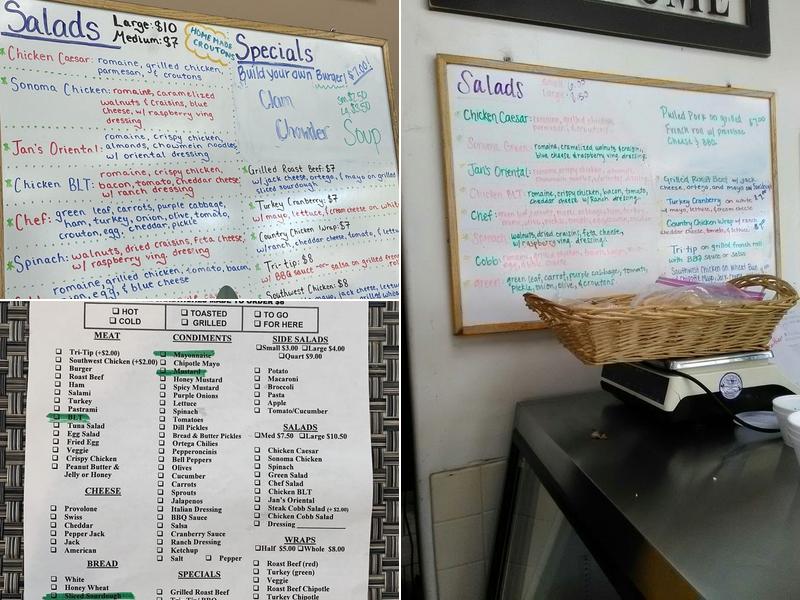 Salads
Large: $10
Medium: $7
HOMEMADE
CROUTONS
Chicken Caesar: romaine, grilled chicken,
parmesan, & croutons
Sonoma Chicken: romaine, caramelized
walnuts & craisins, blue
cheese, w/ raspberry ving.
dressing
Jan's Oriental: romaine, crispy chicken,
almonds, chowmein noodles
w/ oriental dressing
Chicken BLT: romaine, crispy chicken,
bacon, tomato, cheddar cheese
w/ ranch dressing
Chef: green leaf, carrots, purple cabbage,
ham, turkey, onion, olive, tomato,
crouton, egg, cheddar, pickle
Spinach: walnuts, dried craisins, feta cheese,
w/ raspberry ving. dressing
romaine, grilled chicken, tomato, bacon,
egg, & blue cheese
Specials
Build your own Burger! $7.00!
Clam
Chowder
Soup
Grilled Roast Beef: $7
w/ jack cheese, ortega, & mayo on grilled
sliced sourdough
Turkey Cranberry: $7
w/ mayo, lettuce, & cream cheese on
Country Chicken Wrap: $7
w/ ranch, cheddar cheese, tomato,
Tri-tip: $8
w/ BBQ sauce or salsa on grilled
Southwest Chicken: $8
MADE TO ORDER
HOT
COLD
TOASTED
GRILLED
TO GO
FOR HERE
MEAT
Tri-Tip (+$2.00)
Southwest Chicken (+$2.00)
Burger
Roast Beef
Ham
Salami
Turkey
Pastrami
BLT
Tuna Salad
Egg Salad
Fried Egg
Veggie
Crispy Chicken
Peanut Butter &
Jelly or Honey
CHEESE
Provolone
Swiss
Cheddar
Pepper Jack
Jack
American
BREAD
White
Honey Wheat
Sliced Sourdough
CONDIMENTS
Mayonnaise
Chipotle Mayo
Mustard
Honey Mustard
Spicy Mustard
Purple Onions
Lettuce
Spinach
Tomatoes
Dill Pickles
Bread & Butter Pickles
Ortega Chilies
Pepperoncinis
Bell Peppers
Olives
Cucumber
Carrots
Sprouts
Jalapenos
Italian Dressing
BBQ Sauce
Salsa
Cranberry Sauce
Ranch Dressing
Ketchup
Salt Pepper
SPECIALS
Grilled Roast Beef
SIDE SALADS
Small $3.00 Large $4.00
Quart $9.00
Potato
Macaroni
Broccoli
Pasta
Apple
Tomato/Cucumber
SALADS
Med $7.50 Large $10.50
Chicken Caesar
Sonoma Chicken
Spinach
Green Salad
Chef Salad
Chicken BLT
Jan's Oriental
Steak Cobb Salad (+$2.00)
Chicken Cobb Salad
Dressing
WRAPS
Half $5.00 Whole $8.00
Roast Beef (red)
Turkey (green)
Veggie
Roast Beef Chipotle
Turkey Chipotle
Salads
Chicken Caesar:
Sonoma Green: romaine, caramelized walnuts & craisins,
blue cheese & raspberry ving. dressing
Jan's Oriental:
Chicken BLT: romaine, crispy chicken, bacon, tomato,
cheddar cheese w/ Ranch dressing
Chef:
Spinach: walnuts, dried craisins, feta cheese,
w/ raspberry ving. dressing
Cobb:
green leaf, carrot, purple cabbage, tomato,
pickle, onion, olive, & croutons
Pulled Pork on grilled
French roll w/ provolone
cheese & BBQ
$7.00
Grilled Roast Beef w/ jack
cheese, ortega, and mayo on
Turkey Cranberry on white
w/ mayo, lettuce, & cream cheese
Country Chicken Wrap w/ ranch
cheddar cheese, tomato, & lettuce
Tri-tip on grilled french roll
with BBQ sauce or salsa
Southwest Chicken on Wheat Bun